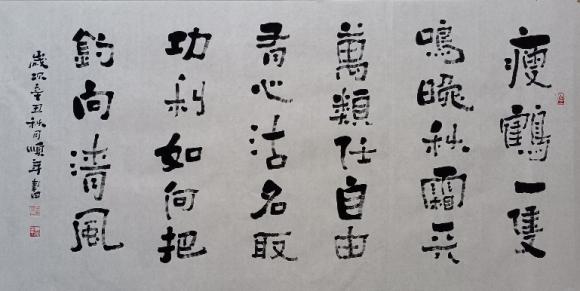 瘦鶴一隻
鳴晚秋霜天
萬類任自由
有心沽名取
功利如何把
釣向清風
歲次辛丑秋月順年書